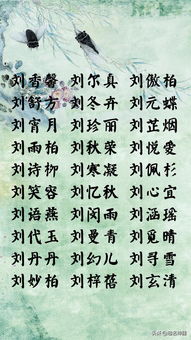 刘香馨 刘尔真 刘傲柏
刘舒方 刘冬卉 刘元蝶
刘宵月 刘珍丽 刘芷烟
刘雨柏 刘秋荣 刘悦爱
刘诗柳 刘寒凝 刘佩杉
刘笑容 刘忆秋 刘心宜
刘语燕 刘闵雨 刘涵瑶
刘代玉 刘曼青 刘觅晴
刘丹丹 刘幻儿 刘寻雪
刘妙柏 刘梓蓓 刘玄清